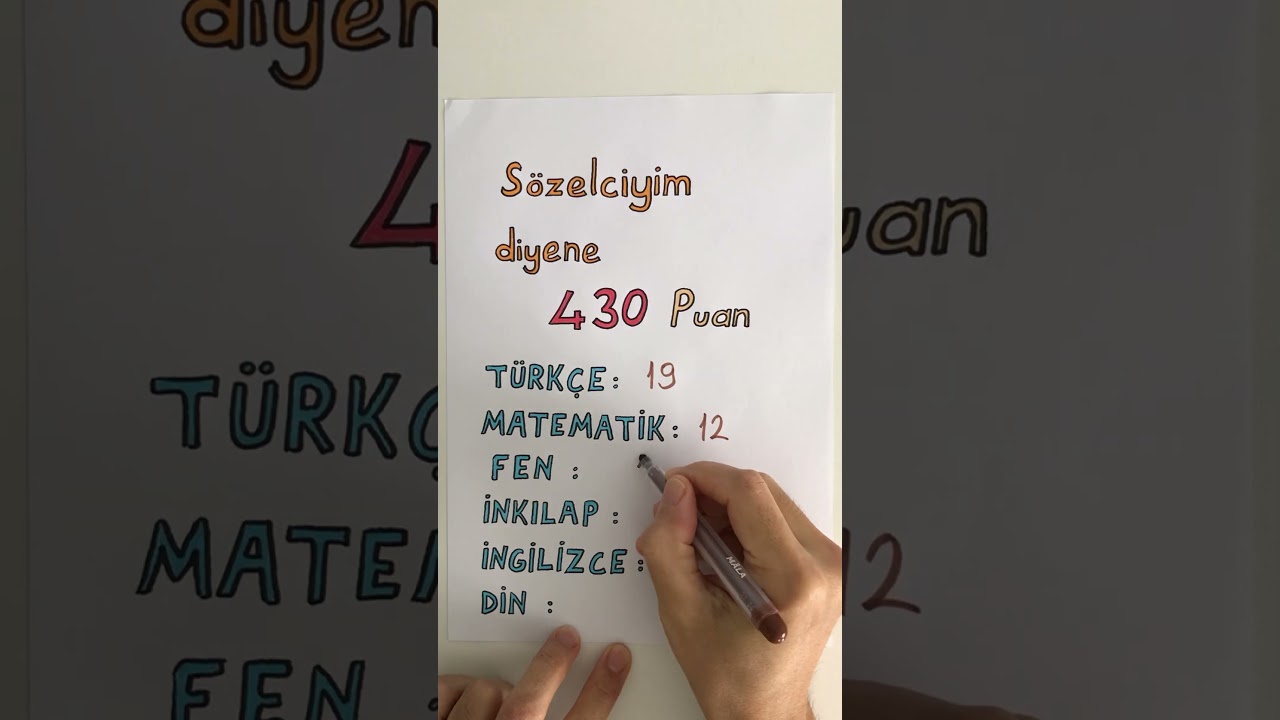 Sözelciyim
diyene
430 Puan
TÜRKÇE: 19
MATEMATİK: 12
FEN :
İNKILAP :
İNGİLİZCE:
DİN :
MALA